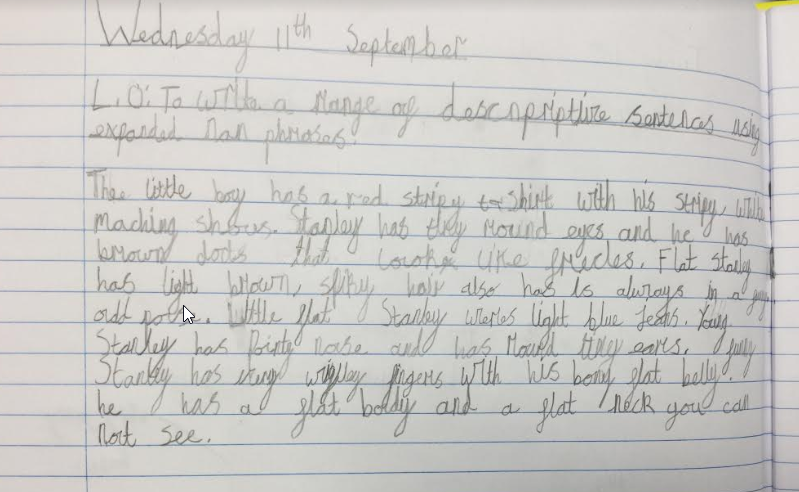 Wednesday 11th September
L.O: To write a range of descnpriptlive sentences using
expanded nan phrases.
The little boy has a red stripy t-shirt with his stripy, white
maching shows. Stanley has tiny round eyes and he has
brown dots that like frecles. Flat Stanley
has light brown, spiky hair also has is always in a
odd . Little flat Stanley wieres light blue Jeans. Young
Stanley has Pointy nose and has round tiny ears. funny
Stanley has very wrigley fingers with his bony flat belly.
he has a flat boddy and a flat neck you can
not see.